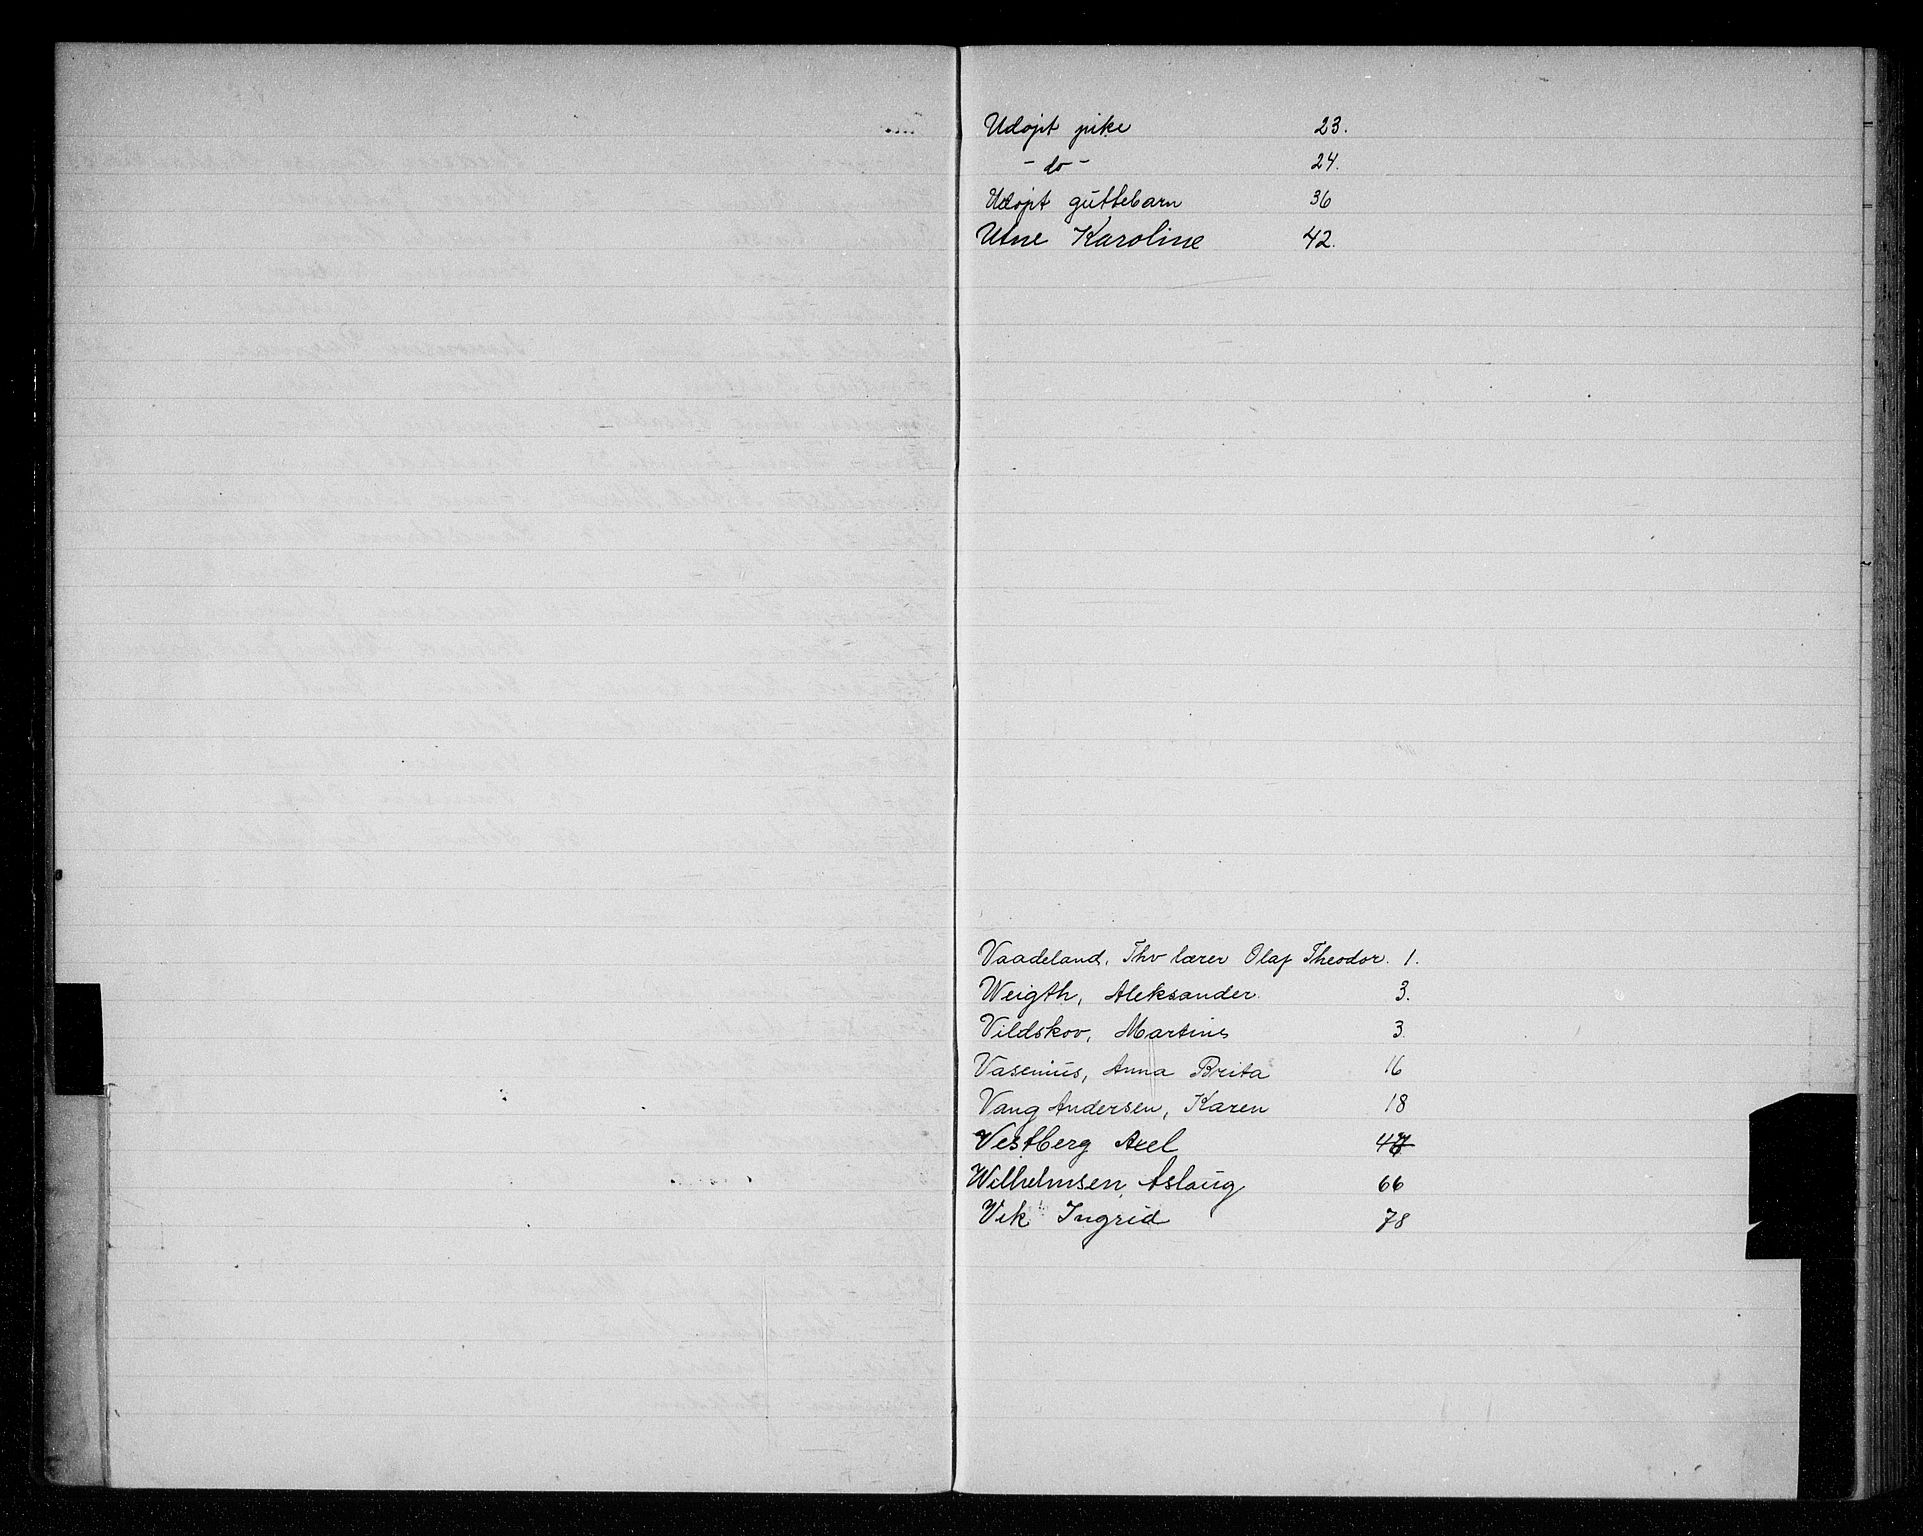 Udøpt pike 23.
- do - 24.
Udøpt guttebarn 36
Utne Karoline 42.
Vaadeland, Thv lærer Olaf Theodor. 1.
Weigth, Aleksander. 3.
Vildskov, Martine 3.
Vasenius, Anna Brita 16
Vang Andersen, Karen 18
Vestberg Axel
Wilhelmsen, Aslaug 66
Vik Ingrid 78